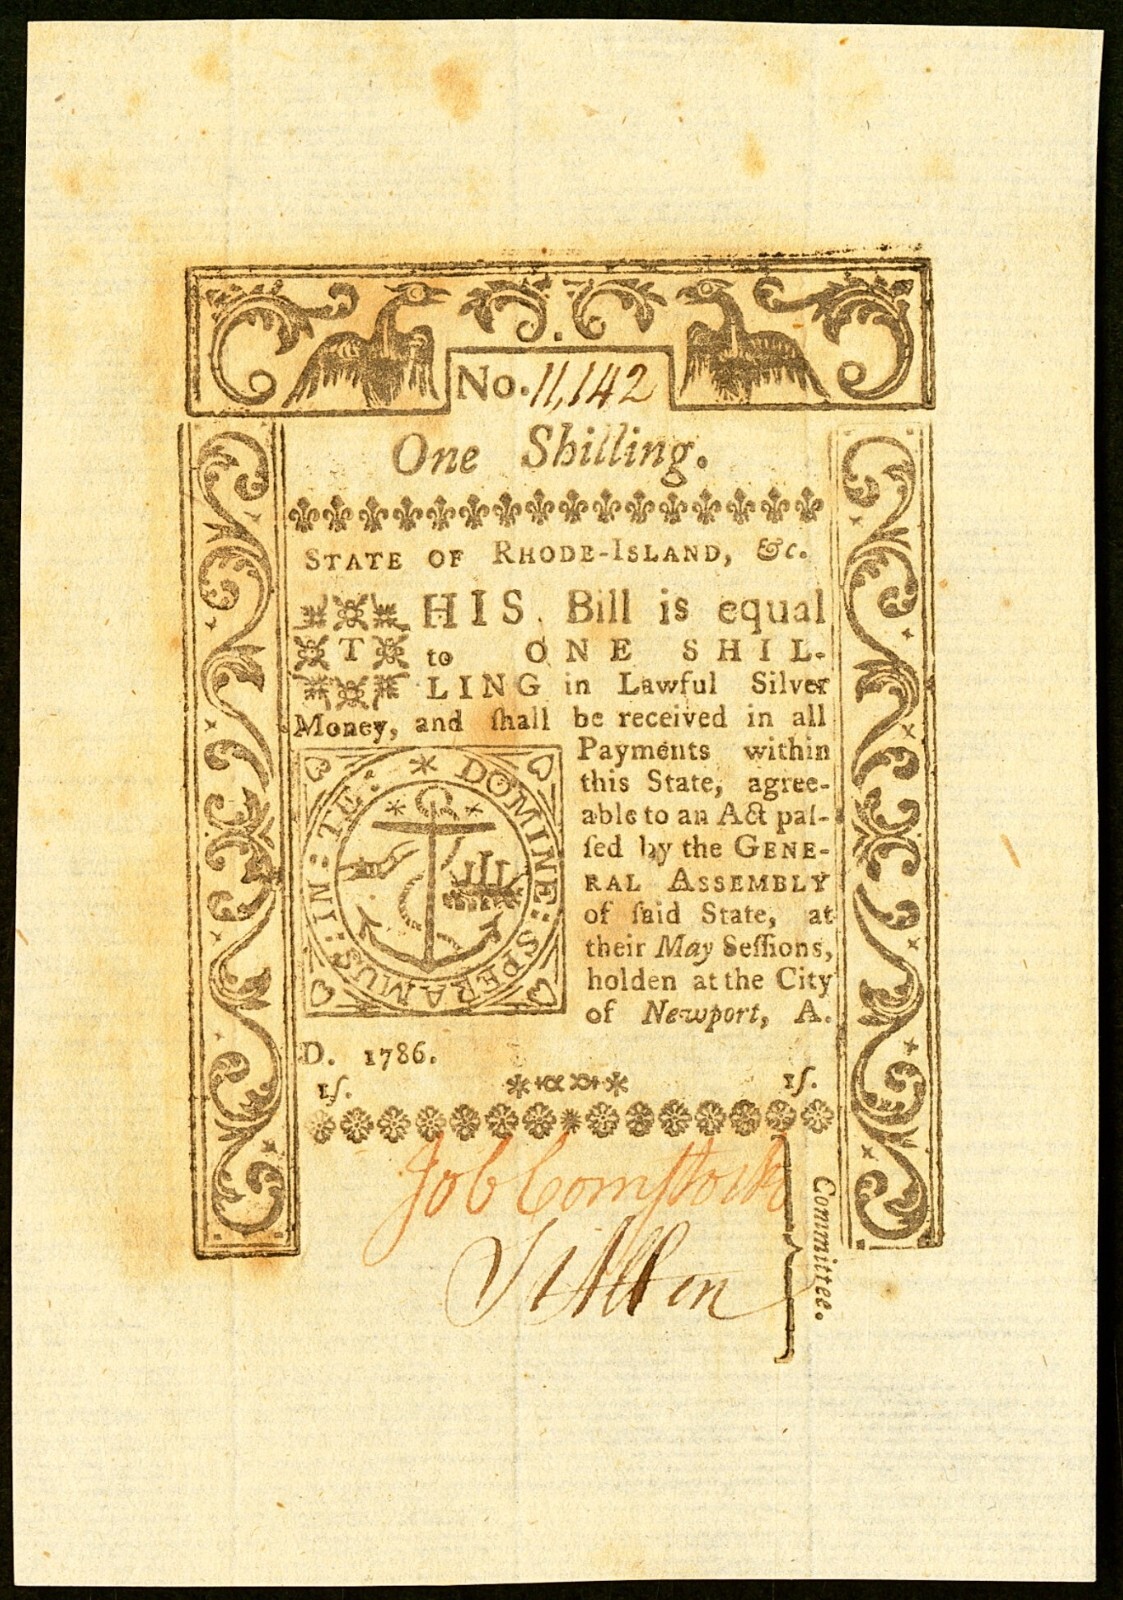 No. 11,142
One Shilling.
STATE OF RHODE-ISLAND, &c.
THIS Bill is equal
to ONE SHIL-
LING in Lawful Silver
Money, and ſhall be received in all
Payments within
this State, agree-
able to an Act paſ-
ſed by the GENE-
RAL ASSEMBLY
of ſaid State, at
their May Seſſions,
holden at the City
of Newport, A.
D. 1786.
IN : TE : * DOMINE : SPERAMUS :
1ſ. 1ſ.
Job Comſtock
Allen
Committee.